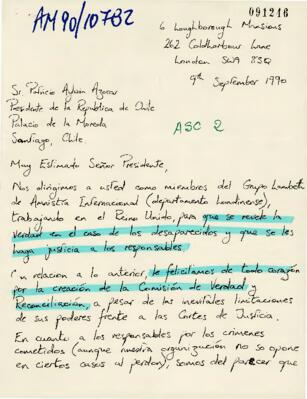 091216
AM90/10782
6 Loughborough Mansions
262 Coldharbour Lane
London SW9 8SQ
9th September 1990
Sr. Patricio Aylwin Azocar
Presidente de la Republica de Chile
Palacio de la Moneda
Santiago, Chile.
ASC 2
Muy Estimado Señor Presidente,
Nos dirigimos a usted como miembros del Grupo Lambeth
de Amnistía Internacional (departamento londinense),
trabajando en el Reino Unido, para que se revele la
verdad en el caso de los desaparecidos y que se les
haga justicia a los responsables.
En relacion a lo anterior, le felicitamos de todo corazón
por la creación de la Comisión de Verdad y
Reconciliación, a pesar de las inevitables limitaciones
de sus poderes frente a las Cortes de Justicia.
En cuanto a los responsables por los crimenes
cometidos (aunque nuestra organización no se opone
en ciertos casos al perdon), somos del parecer que